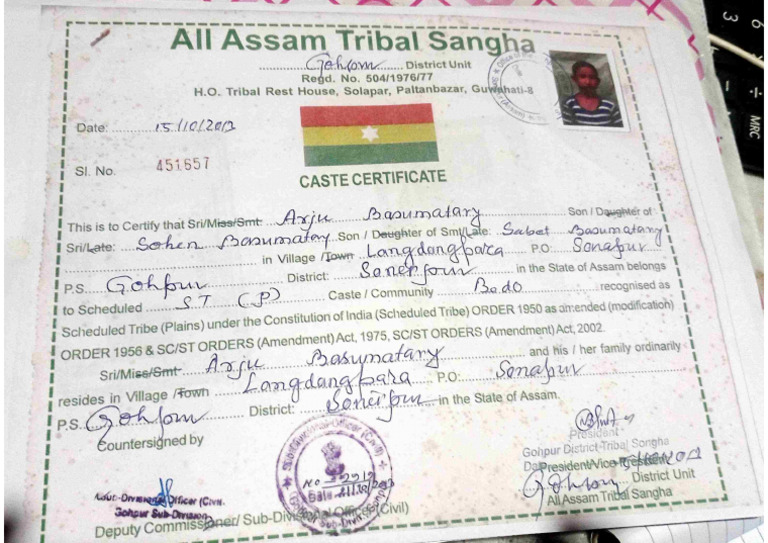 All Assam Tribal Sangha
Gohpur District Unit
Regd. No. 504/1976/77
H.O. Tribal Rest House, Solapar, Paltanbazar, Guwahati-8
Date: 15/10/2013
Sl. No. 451657
CASTE CERTIFICATE
This is to Certify that Sri/Miss/Smt. Arju Basumatary Son / Daughter of
Sri/Late: Sohen Basumatary Son / Daughter of Smt/Late: Sabet Basumatary
in Village /Town Langdangpara P.O: Sonapur
P.S. Gohpur District: Sonitpur in the State of Assam belongs
to Scheduled ST (P) Caste / Community Bodo recognised as
Scheduled Tribe (Plains) under the Constitution of India (Scheduled Tribe) ORDER 1950 as amended (modification)
ORDER 1956 & SC/ST ORDERS (Amendment) Act, 1975, SC/ST ORDERS (Amendment) Act, 2002.
Sri/Miss/Smt Arju Basumatary and his / her family ordinarily
resides in Village /Town Langdangpara P.O: Sonapur
P.S. Gohpur District: Sonitpur in the State of Assam.
Countersigned by
President
Gohpur District Tribal Sangha
President/Vice President
Gohpur District Unit
All Assam Tribal Sangha
Sub-Divisional Officer (Civil)
Gohpur Sub-Division
Deputy Commissioner/ Sub-Divisional Officer (Civil)